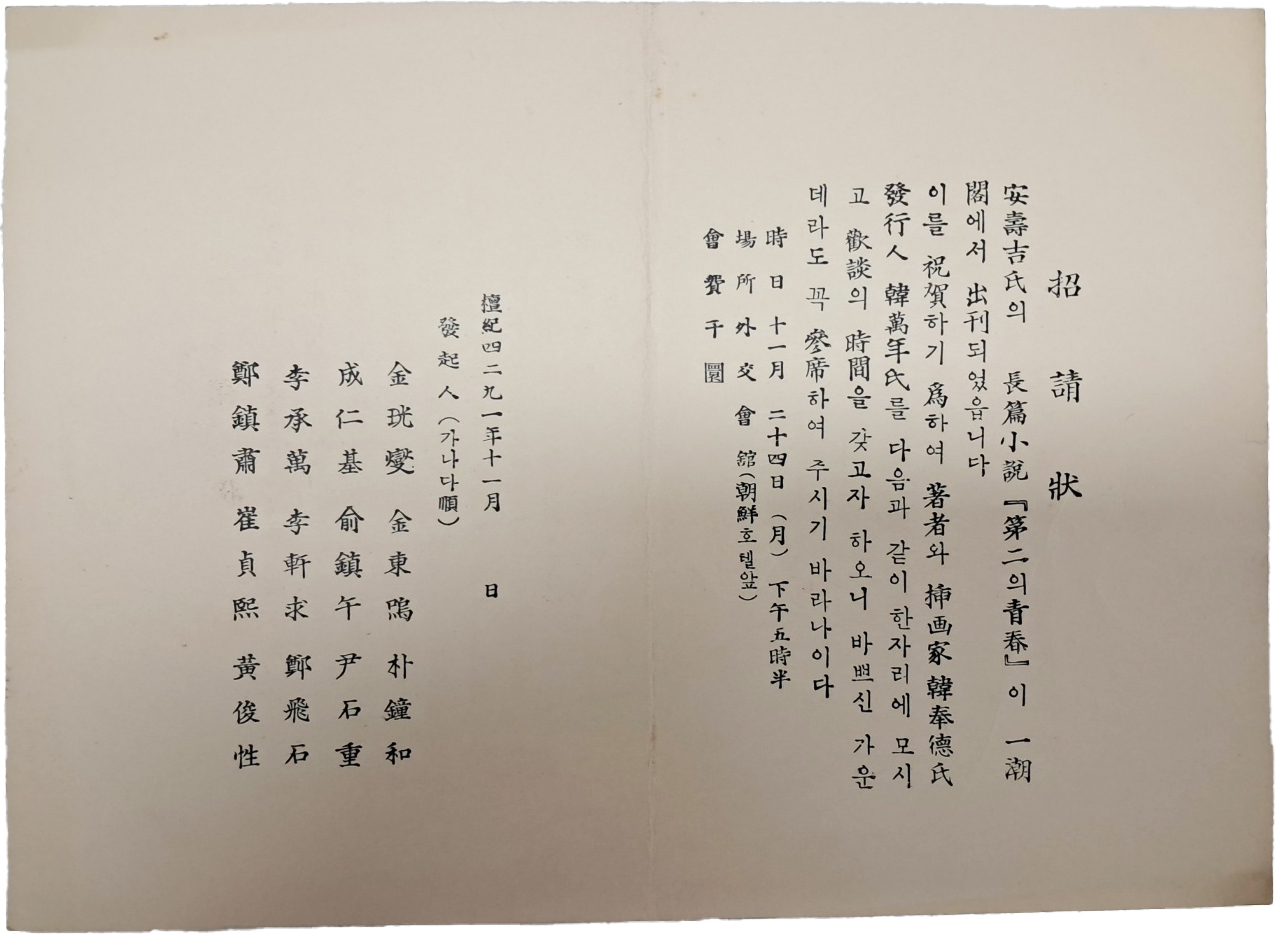 招請狀
安壽吉氏의 長篇小說『第二의靑春』이 一潮
閣에서 出刊되었읍니다
이를 祝賀하기 爲하여 著者와 揷画家韓奉德氏
發行人 韓萬年氏를 다음과 같이한자리에 모시
고 歡談의 時間을 갖고자 하오니 바쁘신 가운
데라도 꼭 參席하여 주시기 바라나이다
時日 十一月 二十四日(月) 下午五時半
場所 外交會舘(朝鮮호텔앞)
會費 千圜
檀紀四二九一年十一月 日
發起人(가나다順)
金珖燮 金東鳴 朴鐘和
成仁基 俞鎭午 尹石重
李承萬 李軒求 鄭飛石
鄭鎭肅 崔貞熙 黃俊性